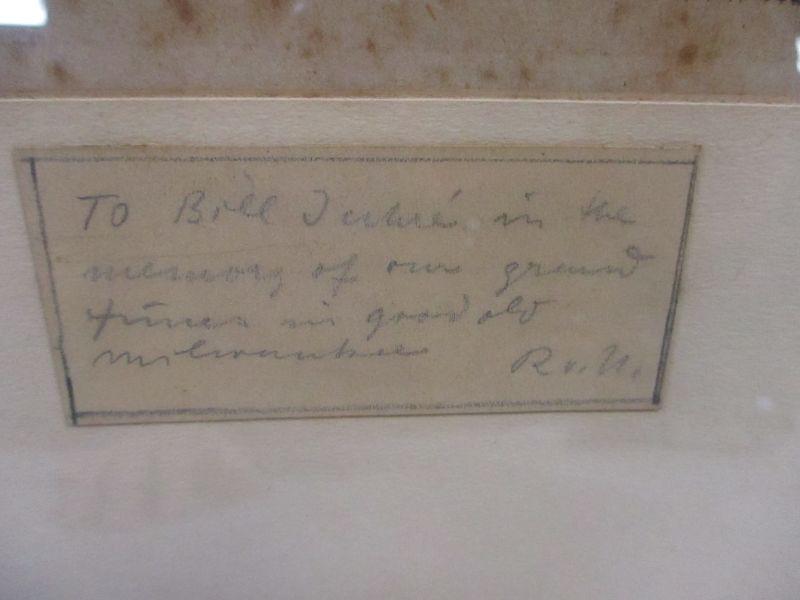 To Bill in the
memory of our grand
times in good old
milwaukee R.v.N.